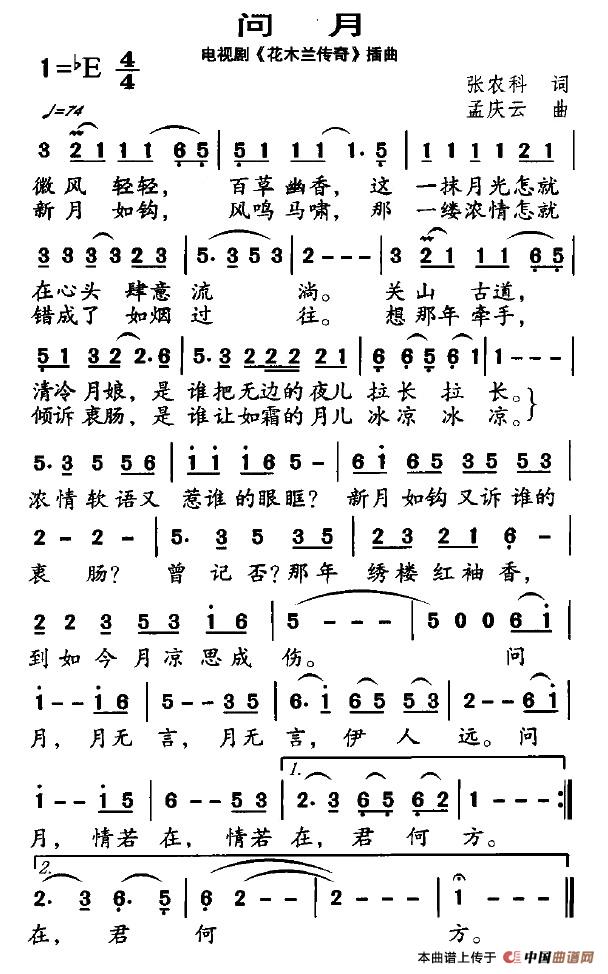 问 月
电视剧《花木兰传奇》插曲
1=♭E 4/4
张农科 词
♩=74
孟庆云 曲
3 2 1 1 1 6 5 | 5 1 1 1 1· 5 | 1 1 1 1 1 2 1 |
微风 轻轻， 百草幽香，这 一抹月光怎就
新月 如钩， 风鸣马啸，那 一缕浓情怎就
3 3 3 3 2 3 | 5· 3 5 3 | 2 - - - | 3 2 1 1 1 6 5 |
在心头 肆意 流 淌。 关山 古道，
错成了 如烟 过 往。 想那年牵手，
5 1 3 2 2· 6 | 5· 3 2 2 2 2 1 | 6 6 5 6 1 | 1 - - - |
清冷月娘，是 谁把无边的夜儿 拉长 拉 长。
倾诉衷肠，是 谁让如霜的月儿 冰凉 冰 凉。
5· 3 5 5 6 | 1 1 1 6 5 - | 6 1 6 5 3 5 5 3 |
浓情软语又 惹谁的眼眶？ 新月如钩又诉谁的
2 - 2 - | 5· 3 5 3 5 | 2 3 2 1 6 - |
衷 肠？ 曾记否？那年 绣楼红袖香，
2 2 3 5 3 1 6 | 5 - - - | 5 0 0 6 1 |
到如今月凉思成 伤。 问
1 - - 1 6 | 5 - - 3 5 | 6· 1 6 5 5 3 | 2 - - 6 1 |
月，月无 言，月无 言，伊 人 远。问
1.
1 - - 1 5 | 6 - - 5 3 | 2· 3 6 5 6 2 | 1 - - - :|
月，情若 在，情若 在，君 何 方。
2.
2· 3 6· 5 | 6 2 - - | 2 - - - | 1 - - - ‖
在， 君 何 方。
本曲谱上传于 中国曲谱网